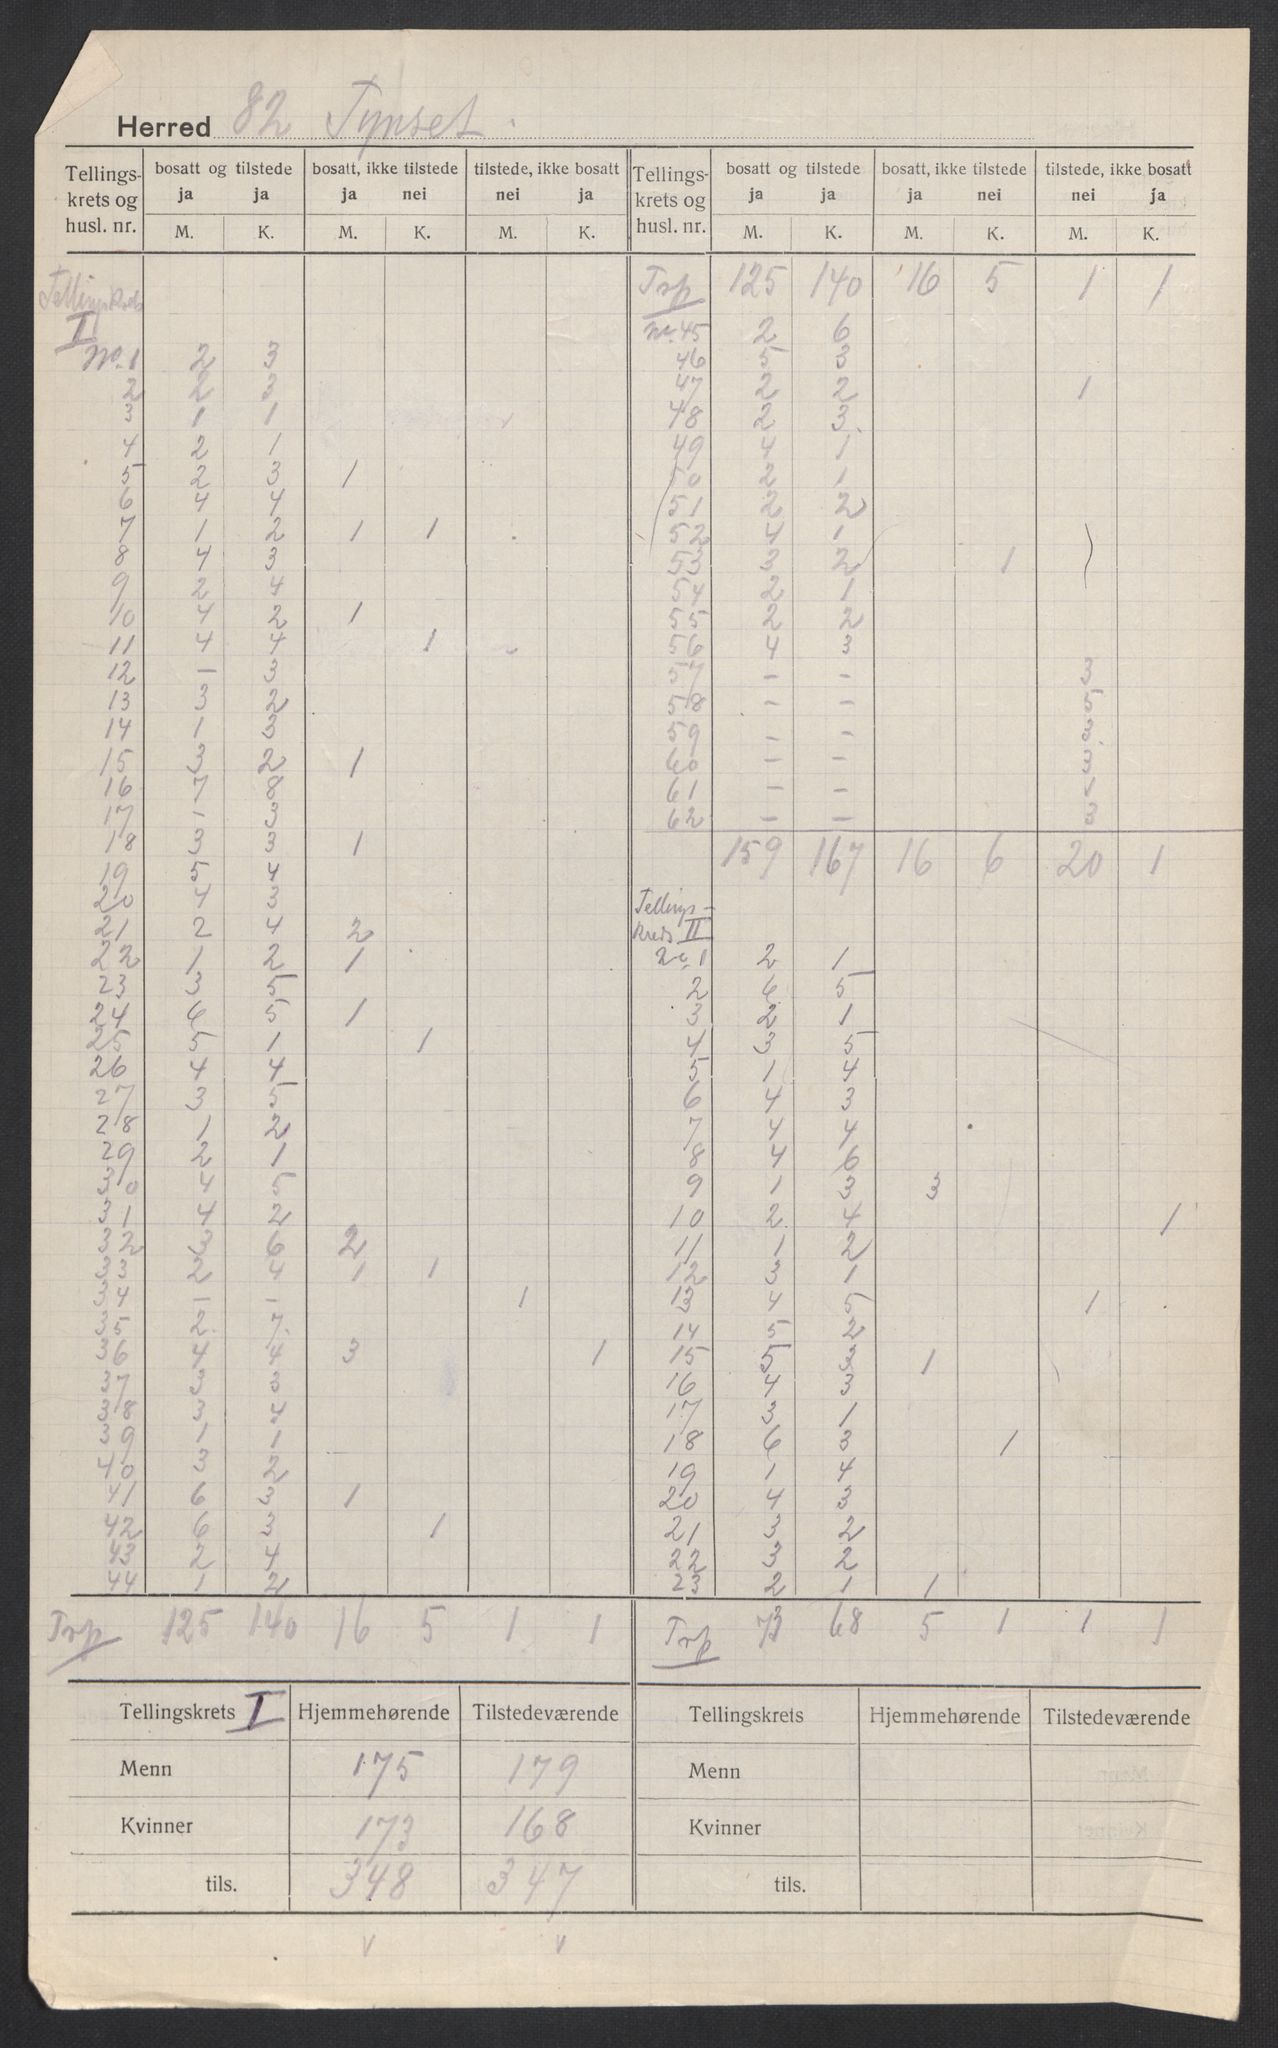 Herred 82 Tynset.
Tellings-krets og husl. nr. | bosatt og tilstede | bosatt, ikke tilstede | tilstede, ikke bosatt | Tellings-krets og husl. nr. | bosatt og tilstede | bosatt, ikke tilstede | tilstede, ikke bosatt
ja ja ja nei nei ja | ja ja ja nei nei ja
M. K. M. K. M. K. | M. K. M. K. M. K.
Tellingskreds I
No. 1 2 3
2 2 3
3 1 1
4 2 1
5 2 3 1
6 4 4
7 1 2 1 1
8 4 3
9 2 4
10 4 2 1
11 4 4 1
12 - 3
13 3 2
14 1 3
15 3 2 1
16 7 8
17 - 3
18 3 3 1
19 5 4
20 4 3
21 2 4 2
22 1 2 1
23 3 5
24 6 5 1
25 5 1 1
26 4 4
27 3 5
28 1 2
29 2 1
30 4 5
31 4 2
32 3 6 2
33 2 4 1 1
34 - - 1
35 2 7
36 4 4 3 1
37 3 3
38 3 4
39 1 1
40 3 2
41 6 3 1
42 6 3 1
43 2 4
44 1 2
Trp 125 140 16 5 1 1
Trp 125 140 16 5 1 1
No. 45 2 6
46 5 3
47 2 2 1
48 2 3
49 4 1
50 2 1
51 2 2
52 4 1
53 3 2 1
54 2 1
55 2 2
56 4 3
57 - - 3
58 - - 5
59 - - 3
60 - - 3
61 - - 1
62 - - 3
159 167 16 6 20 1
Tellings-
kreds II
No. 1 2 1
2 6 5
3 2 1
4 3 5
5 1 4
6 4 3
7 4 4
8 4 6
9 1 3 3
10 2 4 1
11 1 2
12 3 1
13 4 5 1
14 5 2
15 5 3 1
16 4 3
17 3 1
18 6 3 1
19 1 4
20 4 3
21 3 2
22 3 2
23 2 1 1
Trp 73 68 5 1 1 1
Tellingskrets I Hjemmehørende Tilstedeværende
Menn 175 179
Kvinner 173 168
tils. 348 347
Tellingskrets Hjemmehørende Tilstedeværende
Menn
Kvinner
tils.